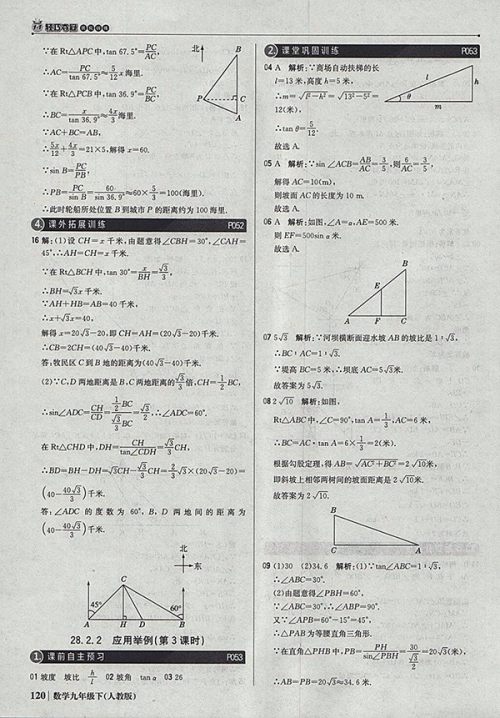 轻巧夺冠
∵在Rt△APC中,tan 67.5°=PC/AC,
∴AC=PC/tan 67.5°≈5/12x海里.
∵在Rt△PCB中,tan 36.9°=PC/BC,
∴BC=x/tan 36.9°≈4x/3海里.
∵AC+BC=AB,
∴5x/12+4x/3=21×5,解得x=60.
∵sin B=PC/PB,
∴PB=PC/sin B=60/sin 36.9°≈60×5/3=100(海里).
∴此时轮船所处位置B到城市P的距离约为100海里.
北
B
P
C
A
4. 课外拓展训练 P052
16 解:(1)设CH=x千米,由题意得∠CBH=30°,∠CAH=
45°,∴AH=CH=x千米.
在Rt△BCH中,tan 30°=x/BH=√3/3,
∴BH=√3x千米.
∵AH+HB=AB=40千米,
∴x+√3x=40,
解得x=20√3-20,即CH=AH=(20√3-20)千米.
∴CB=2CH=(40√3-40)千米.
答:牧民区C到B地的距离为(40√3-40)千米.
(2)∵C,D两地距离是B,C两地距离的√3/3倍,CH=1/2BC,
∴sin∠ADC=CH/CD=1/2BC/√3/3BC=√3/2,∴∠ADC=60°.
在Rt△CHD中,DH=CH/tan∠CDH=√3/3CH,
∴BD=BH-DH=√3CH-√3/3CH=2/3√3×(20√3-20)=
(40-40√3/3)千米.
答:∠ADC的度数为60°,B,D两地间的距离为
(40-40√3/3)千米.
北
东
C
45° 60°
A H D B
28.2.2 应用举例(第3课时)
1. 课前自主预习 P053
01 坡度 坡比 h/l 02 坡角 tanα 03 26
120 数学九年级下(人教版)
2. 课堂巩固训练 P053
04 A 解析:∵商场自动扶梯的长
l=13米,高度h=5米,
∴m=√l²-h²=√13²-5²=
12(米),
∴tan θ=5/12.
故选A.
l
h
θ
m
05 A 解析:∵sin ∠ACB=AB/AC=3/5,则6/AC=3/5,
解得AC=10(m),
则坡面AC的长度为10 m.
故选A.
06 A 解析:如图,∠A=α,AE=500米.
则EF=500sin α米.
故选A.
B
E
A F C
07 5√3 解析:∵河坝横断面迎水坡AB的坡比是1∶√3,
∴BC∶AC=1∶√3.
∵堤高BC=5米,∴坝底AC=5√3米.
故答案为5√3.
08 2√10 解析:如图,
Rt△ABC中,∠C=90°,tan A=1/3,AC=6米,
∴BC=AC·tan A=6×1/3=2(米).
根据勾股定理,得AB=√AC²+BC²=2√10米,
即斜坡上相邻两树间的坡面距离是2√10米.
故答案为2√10.
B
C A
09 (1)30 (2)34.6 解析:(1)∵tan∠ABC=1∶√3,
∴∠ABC=30°.
(2)由题意得∠PBH=60°,
∵∠ABC=30°,∴∠ABP=90°.
又∵∠APB=60°-15°=45°,
∴△PAB为等腰直角三角形.
∵在直角△PHB中,PB=PH/sin∠PBH=30/√3/2=20√3(米),
∴AB=PB=20√3≈34.6米.